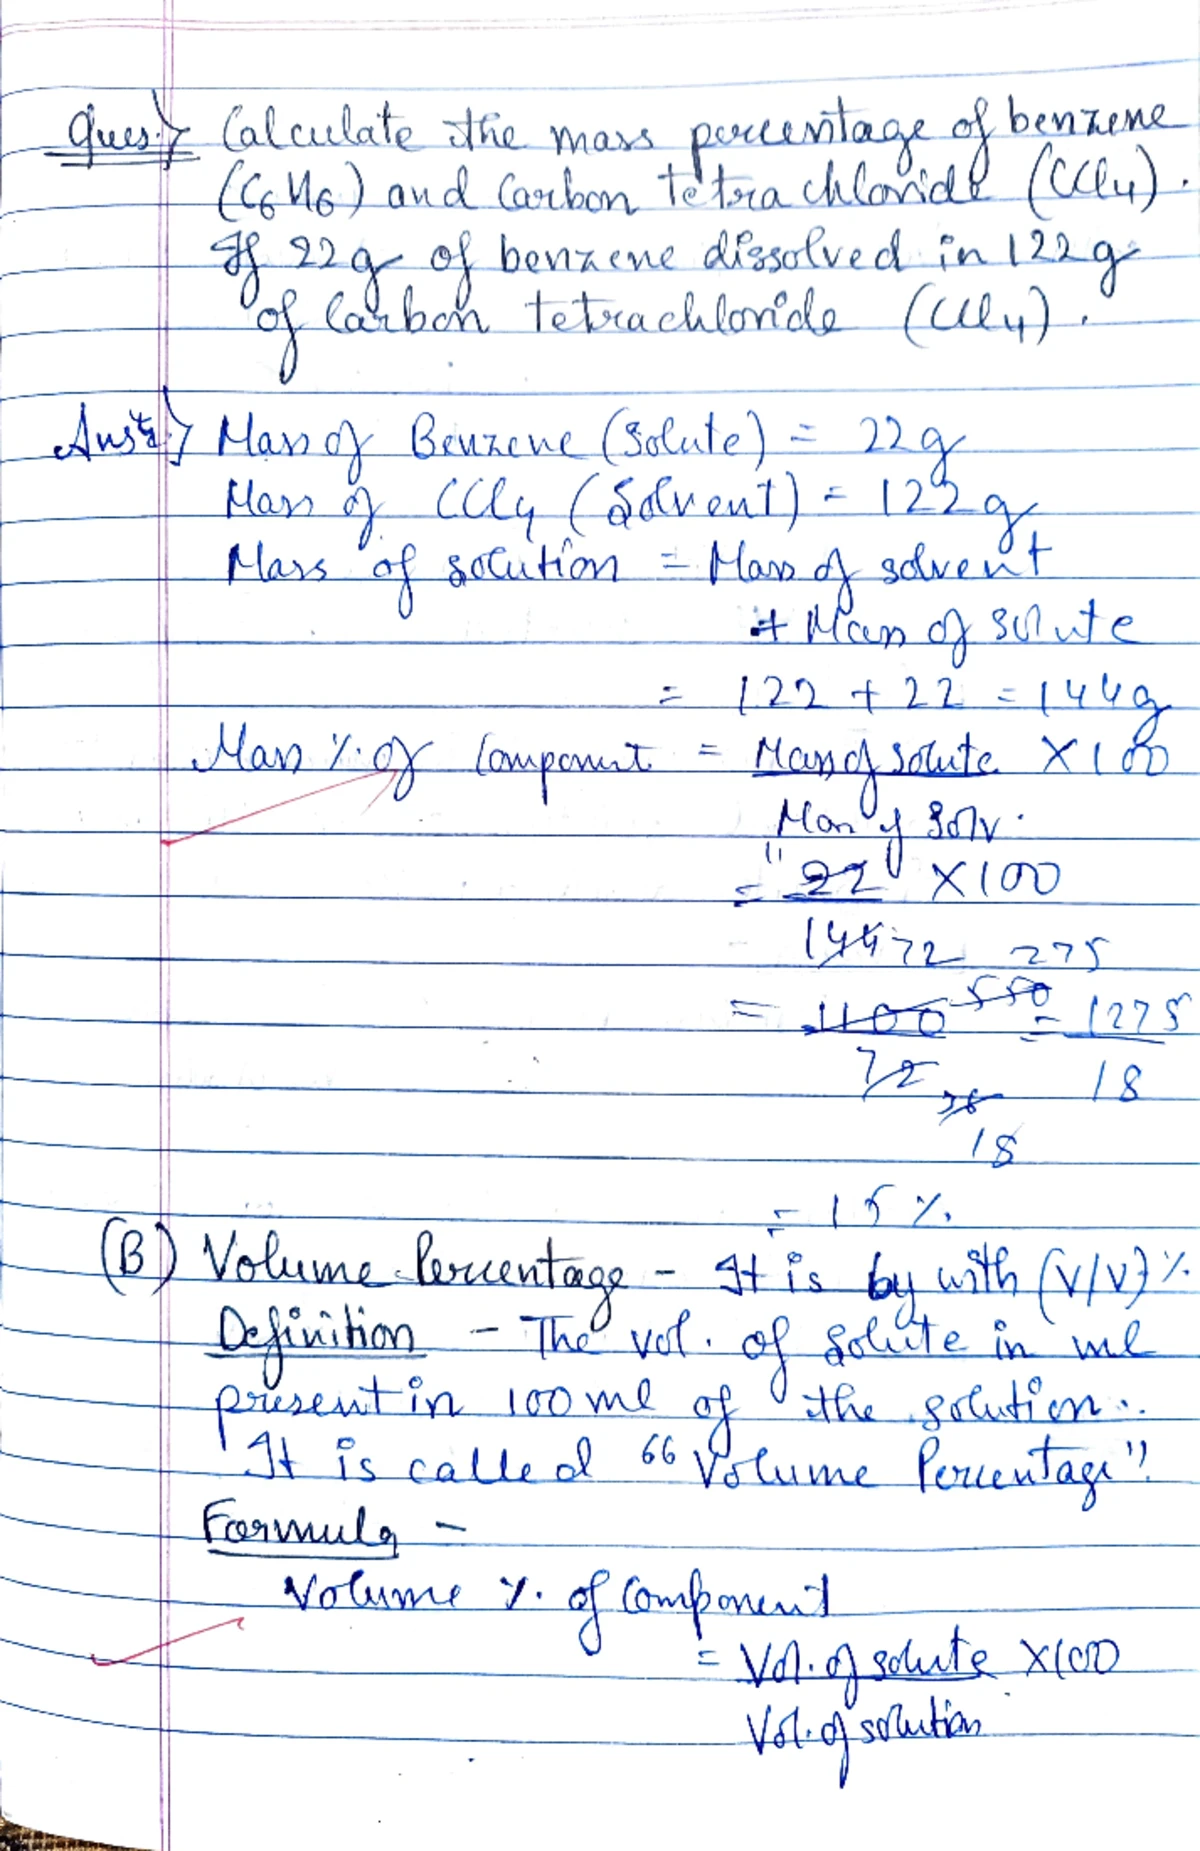 Ques:> Calculate the mass percentage of benzene
(C6H6) and Carbon tetra chloride (CCl4).
If 22g of benzene dissolved in 122g
of Carbon tetrachloride (CCl4).
Mass of Benzene (Solute) = 22g
Mass of CCl4 (Solvent) = 122g
Mass of solution = Mass of solvent
+ Mass of solute
= 122 + 22 = 144g
Mass % of Component = Mass of solute X 100
Mass of Solv.
11
= 22 X100
144 72 275
= 1100 550 = 1275
72 36 18
18
= 15 %
(B) Volume Percentage - It is by with (V/V) %
Definition - The vol. of solute in ml
present in 100 ml of the solution..
It is called 66 Volume Percentage".
Formula -
Volume %. of Component
= Vol. of solute X100
Vol. of solution